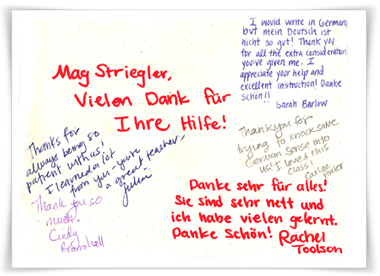 Mag Striegler,
Vielen Dank für
Ihre Hilfe!
I would write in German,
but mein Deutsch ist
nicht so gut! Thank you
for all the extra consideration
you've given me. I
appreciate your help and
excellent instruction! Danke
schön!!
Sarah Barlow
Thanks for
always being so
patient with us!
I learned a lot
from you - you're
a great teacher -
Julia
Thank you for
trying to knock some
German sense into
us! I loved this
class!
Porter
Thank you so
much!
Cindy
Danke sehr für alles!
Sie sind sehr nett und
ich habe vielen gelernt.
Danke Schön! Rachel
Toolson